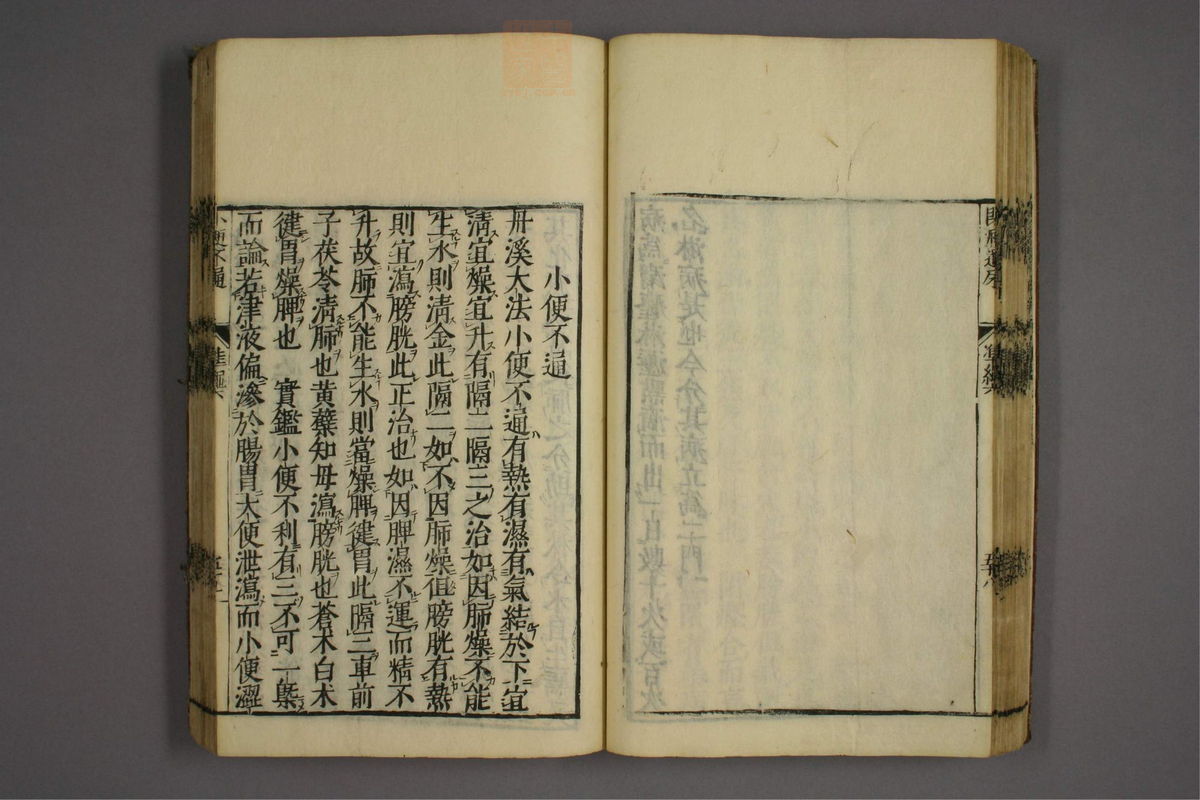 小便不通
丹溪大法小便不通有熱有濕有氣結於下宜
淸宜燥宜升有隔二隔三之治如因肺燥不能
生水則淸金此隔二如不因肺燥但膀胱有熱
則宜瀉膀胱此正治也如因脾濕不運而精不
升故肺不能生水則當燥脾健胃此隔三車前
子茯苓淸肺也黃蘗知母瀉膀胱也蒼朮白朮
健胃燥脾也 實鑑小便不利有三不可一槩
而論若津液偏滲於腸胃大便泄瀉而小便澀
小便不通